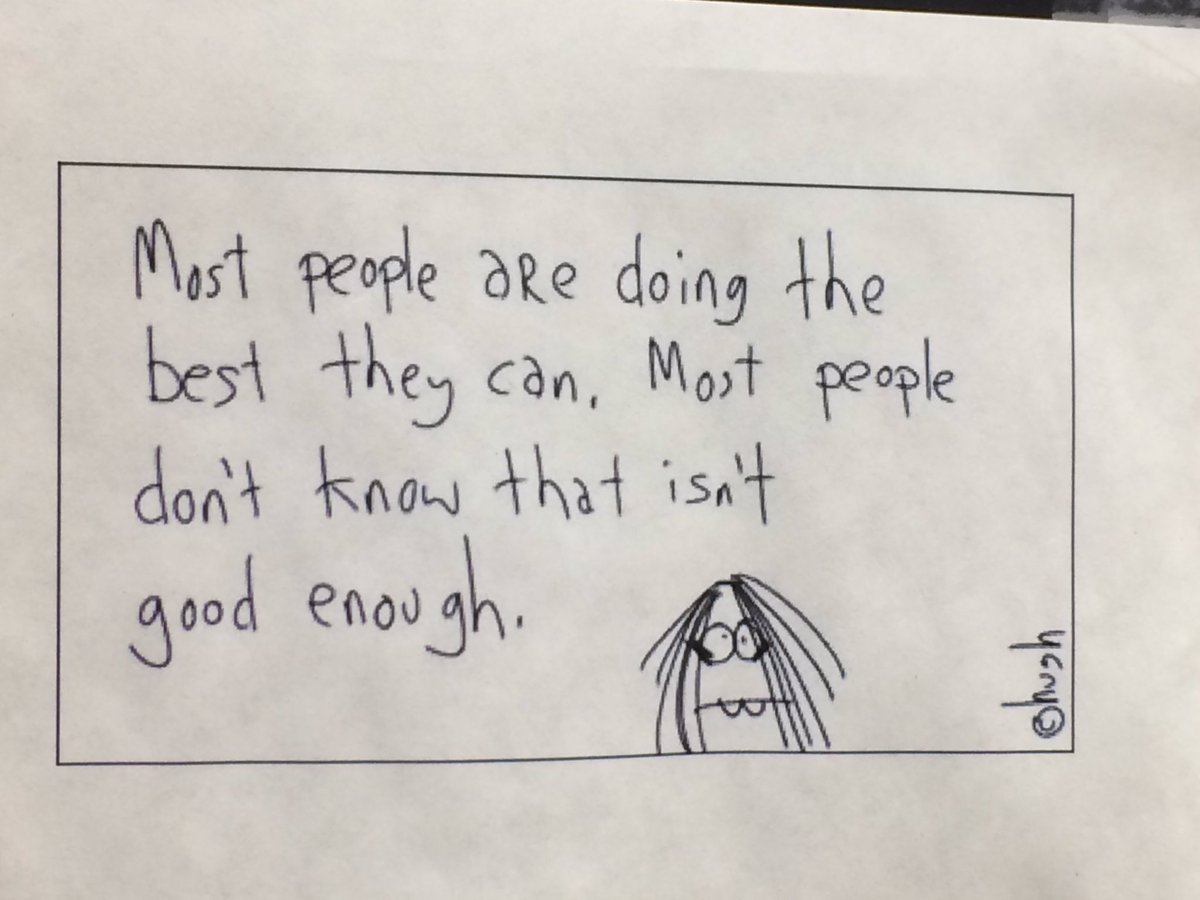 Most people are doing the
best they can. Most people
don't know that isn't
good enough.
©hugh